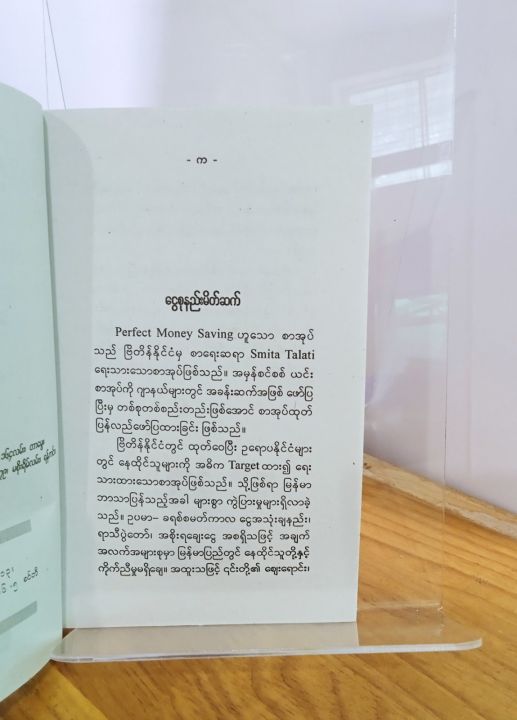 - က -
ငွေစုနည်းမိတ်ဆက်
Perfect Money Saving ဟူသော စာအုပ်
သည် ဗြိတိန်နိုင်ငံမှ စာရေးဆရာ Smita Talati
ရေးသားသောစာအုပ်ဖြစ်သည်။ အမှန်စင်စစ် ယင်း
စာအုပ်ကို ဂျာနယ်များတွင် အခန်းဆက်အဖြစ် ဖော်ပြ
ပြီးမှ တစ်စုတစ်စည်းတည်းဖြစ်အောင် စာအုပ်ထုတ်
ပြန်လည်ဖော်ပြထားခြင်း ဖြစ်သည်။
ဗြိတိန်နိုင်ငံတွင် ထုတ်ဝေပြီး ဥရောပနိုင်ငံများ
တွင် နေထိုင်သူများကို အဓိက Target ထား၍ ရေး
သားထားသောစာအုပ်ဖြစ်သည်။ သို့ဖြစ်ရာ မြန်မာ
ဘာသာပြန်သည့်အခါ များစွာ ကွဲပြားမှုများရှိလာခဲ့
သည်။ ဥပမာ– ခရစ်စမတ်ကာလ ငွေအသုံးချနည်း၊
ရာသီပွဲတော်၊ အစိုးရချေးငွေ အစရှိသဖြင့် အချက်
အလက်အများစုမှာ မြန်မာပြည်တွင် နေထိုင်သူတို့နှင့်
ကိုက်ညီမှုမရှိချေ။ အထူးသဖြင့် ၎င်းတို့၏ ဈေးရောင်း၊